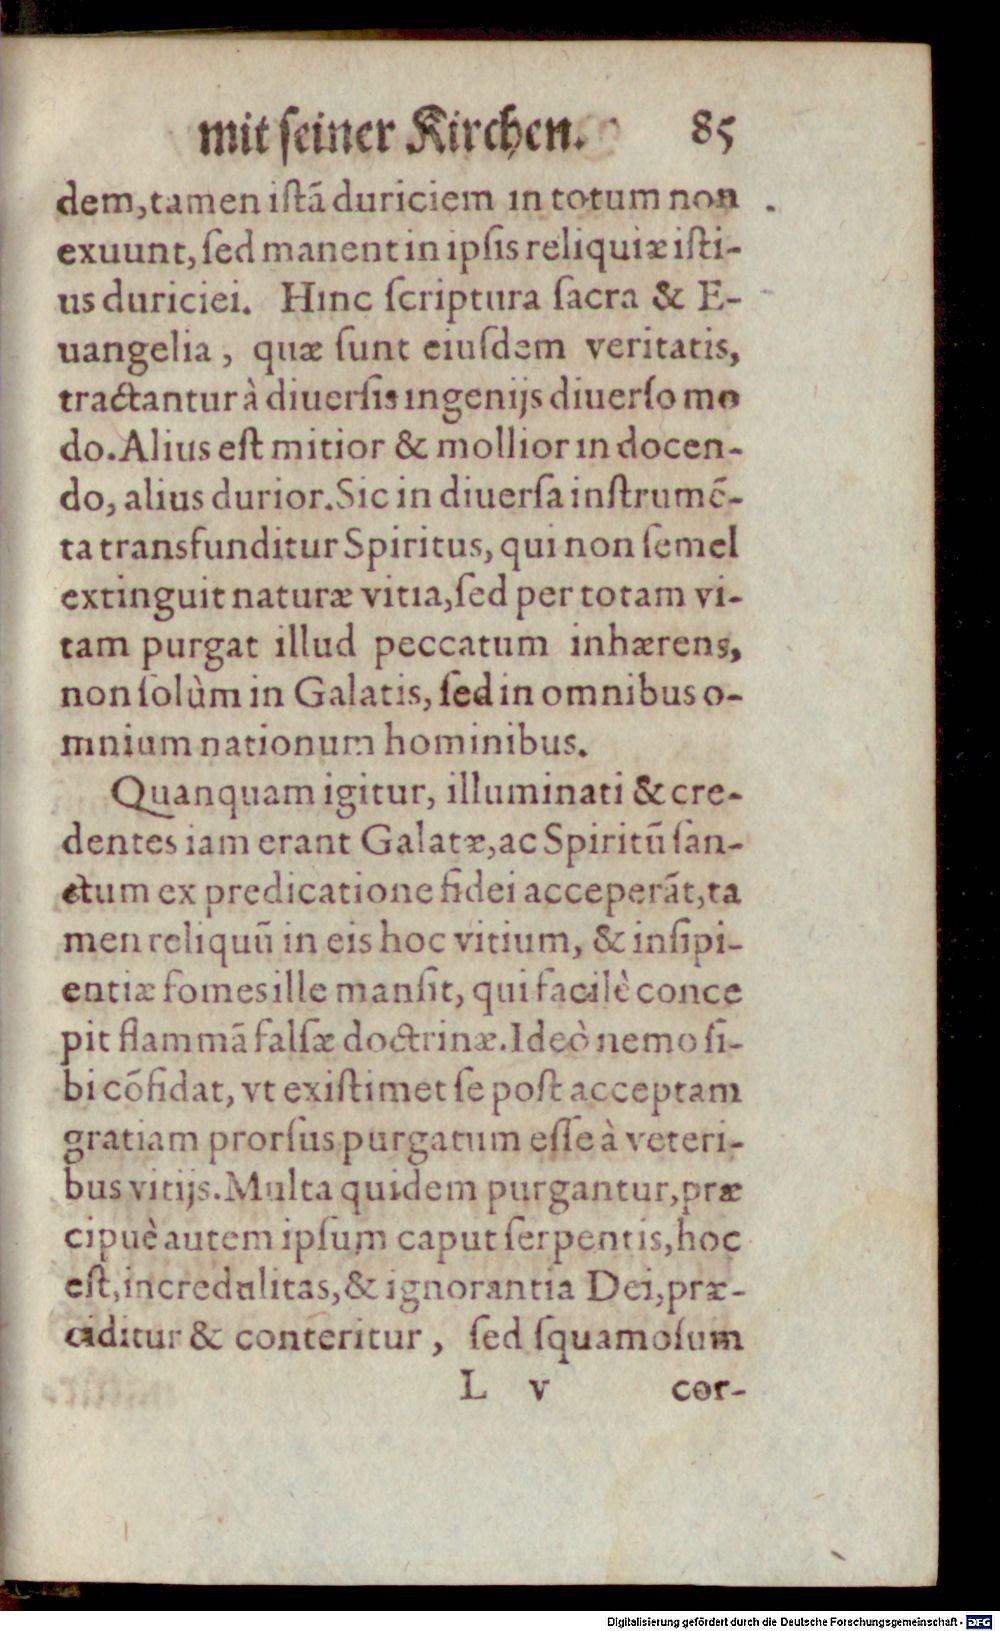 mit ſeiner Kirchen. 85
dem, tamen iſtã duriciem in totum non
exuunt, ſed manent in ipſis reliquiæ iſti-
us duriciei. Hinc ſcriptura ſacra & E-
uangelia, quæ ſunt eiuſdem veritatis,
tractantur à diuerſis ingenijs diuerſo mo
do. Alius eſt mitior & mollior in docen-
do, alius durior. Sic in diuerſa inſtrumẽ-
ta transfunditur Spiritus, qui non ſemel
extinguit naturæ vitia, ſed per totam vi-
tam purgat illud peccatum inhærens,
non ſolùm in Galatis, ſed in omnibus o-
mnium nationum hominibus.
Quanquam igitur, illuminati & cre-
dentes iam erant Galatæ, ac Spiritũ ſan-
ctum ex predicatione fidei acceperãt, ta
men reliquũ in eis hoc vitium, & inſipi-
entiæ fomes ille manſit, qui facilè conce
pit flammã falſæ doctrinæ. Ideò nemo ſi-
bi cõfidat, vt exiſtimet ſe poſt acceptam
gratiam prorſus purgatum eſſe à veteri-
bus vitijs. Multa quidem purgantur, præ
cipuè autem ipſum caput ſerpentis, hoc
eſt, incredulitas, & ignorantia Dei, præ-
ciditur & conteritur, ſed ſquamoſum
L v cor-
Digitalisierung gefördert durch die Deutsche Forschungsgemeinschaft - DFG